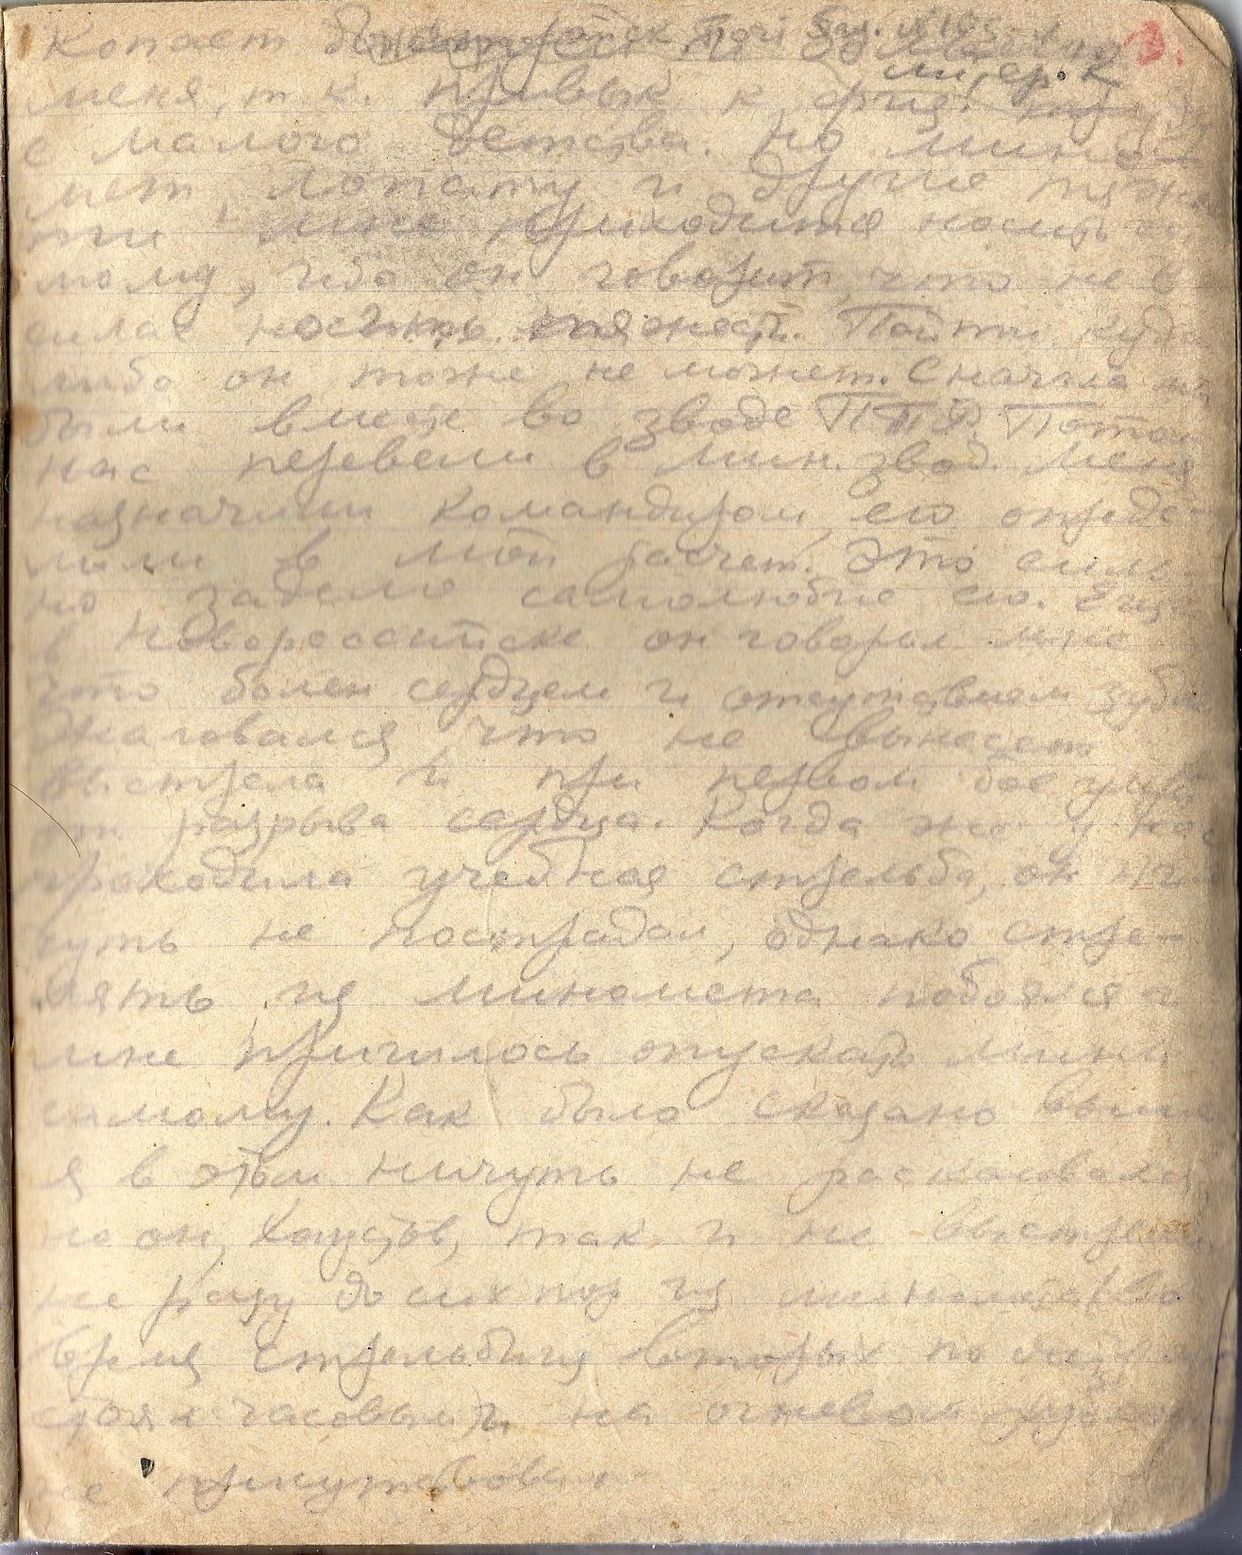 Копает
литер. К
меня, т.к. привык к физ.
с малого детства. Но мино-
мет, лопату и другие тяжес
ти мне приходится носить са
мому, ибо он говорит, что не в
силах носить тяжести. Пойти куда
либо он тоже не может. Сначала мы
были вместе во зводе ПТР. Потом
нас перевели в мин. звод. Меня
назначили командиром, его опреде-
лили в мой расчет. Это силь
но задело самолюбие его. Еще
в Новороссийске он говорил мне
что болен сердцем и отсутствием зубов
Жаловался, что не вынесет
выстрела и при первом бое умрет
от разрыва сердца. Когда же у нас
проходила учебная стрельба, он ни
чуть не пострадал, однако стре-
лять из миномета побоялся и
мне пришлось опускать мины
самому. Как было сказано выше
я в этом ничуть не раскаивался
но он, Хаустов, так и не выстрелил
не разу до сих пор из миномета (во
время стрельбищ вторых по
стоял часовым и на огневой
не присутствовал.